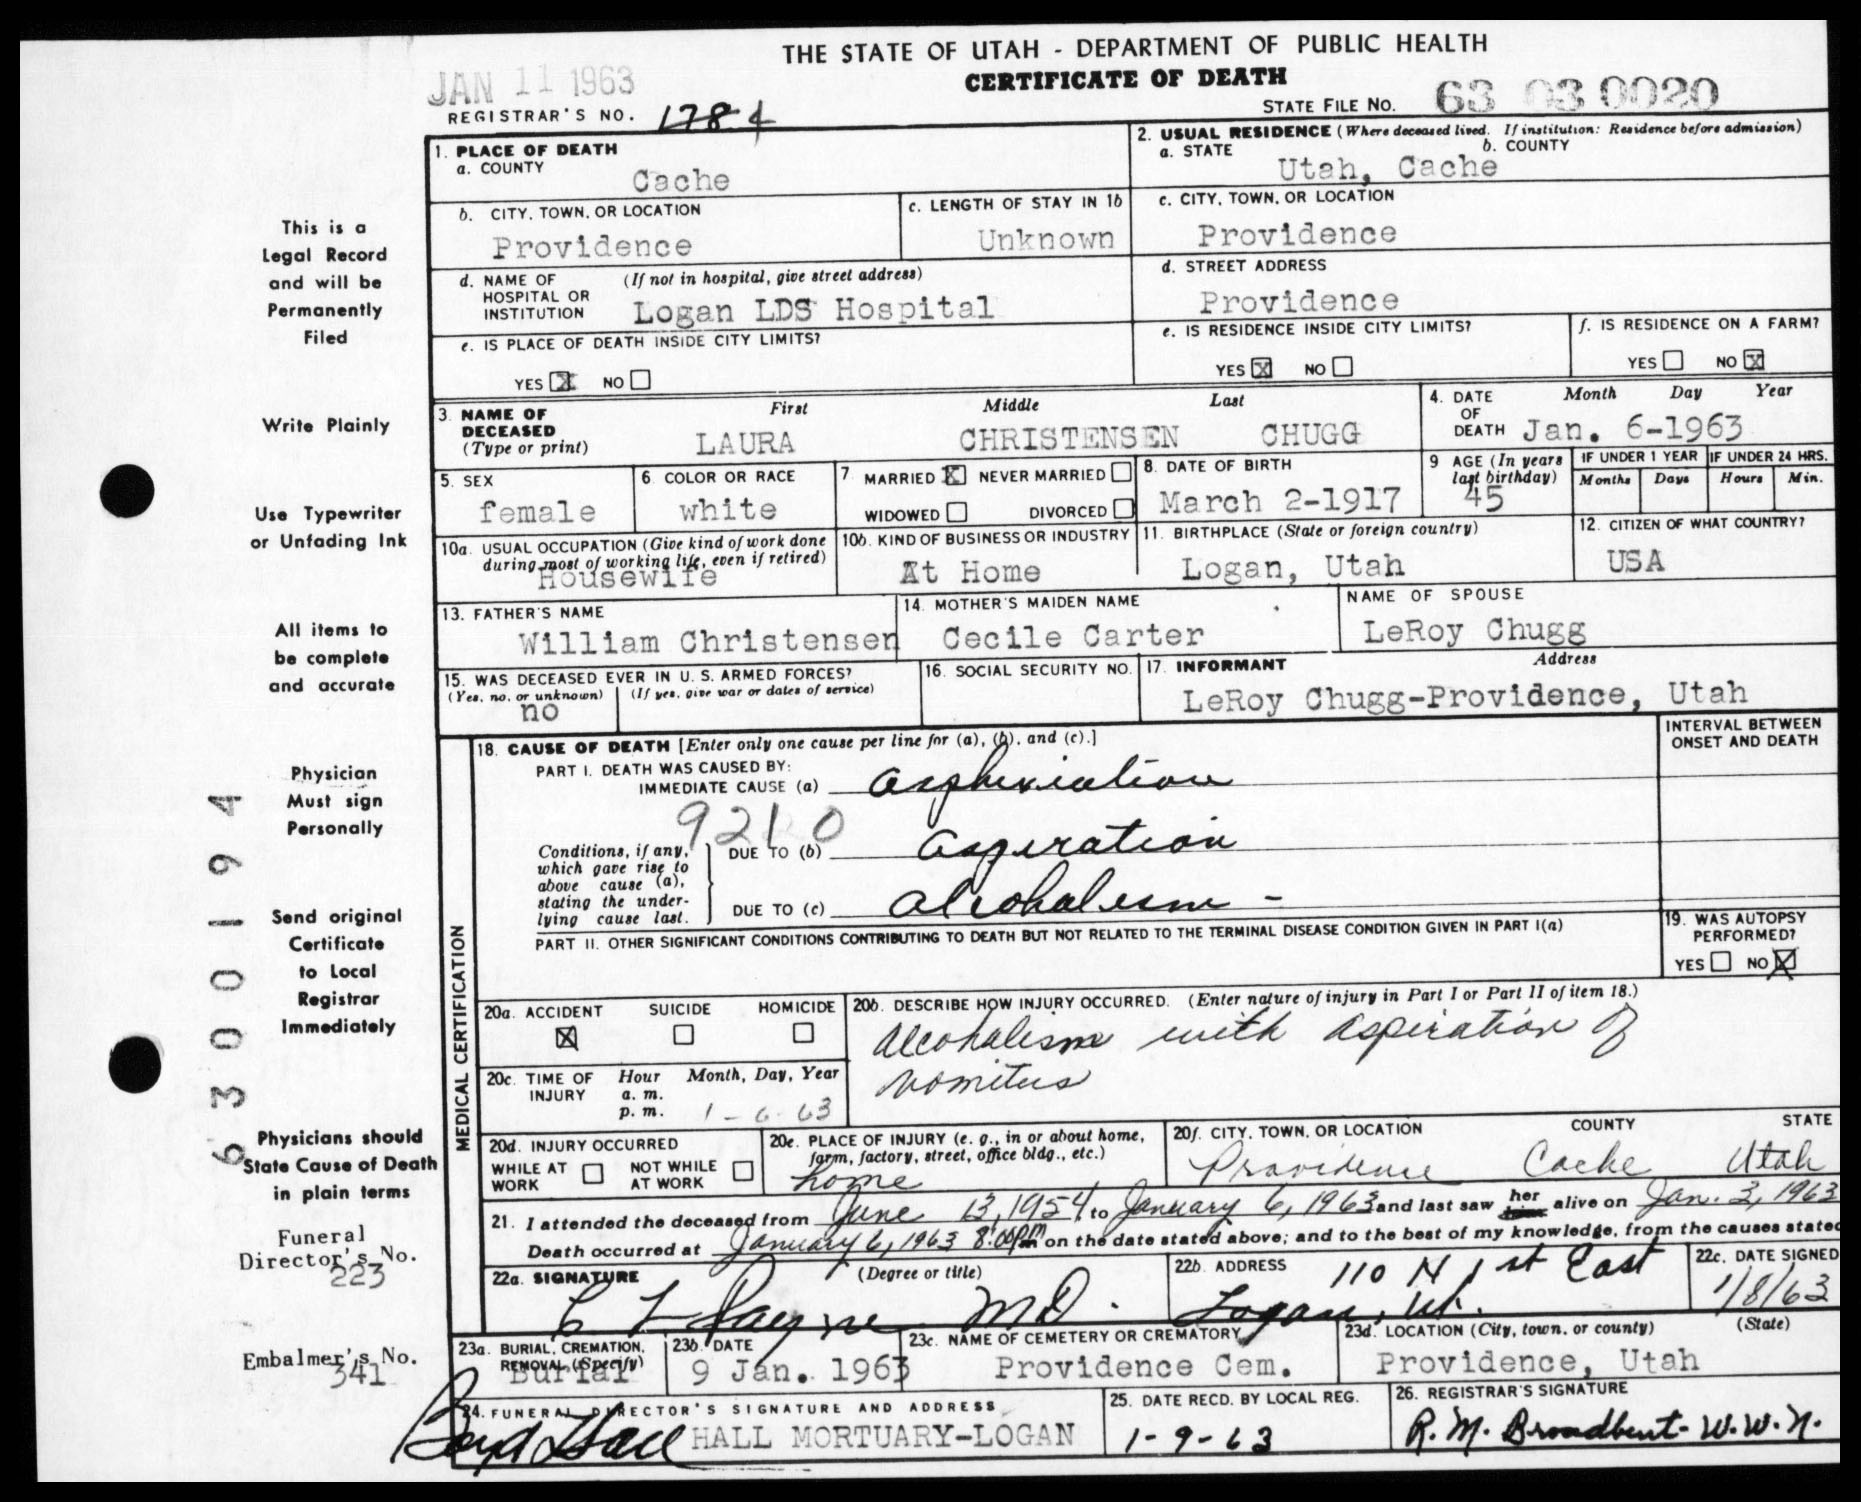 THE STATE OF UTAH - DEPARTMENT OF PUBLIC HEALTH
CERTIFICATE OF DEATH
JAN 11 1963
REGISTRAR'S NO. 1784
STATE FILE NO. 63 03 0020
This is a
Legal Record
and will be
Permanently
Filed
Write Plainly
Use Typewriter
or Unfading Ink
All items to
be complete
and accurate
Physician
Must sign
Personally
Send original
Certificate
to Local
Registrar
Immediately
Physicians should
State Cause of Death
in plain terms
Funeral
Director's No.
223
Embalmer's No.
341
6300194
1. PLACE OF DEATH
a. COUNTY
Cache
2. USUAL RESIDENCE (Where deceased lived. If institution: Residence before admission)
a. STATE b. COUNTY
Utah, Cache
b. CITY, TOWN, OR LOCATION
Providence
c. LENGTH OF STAY IN 1b
Unknown
c. CITY, TOWN, OR LOCATION
Providence
d. NAME OF HOSPITAL OR INSTITUTION (If not in hospital, give street address)
Logan LDS Hospital
d. STREET ADDRESS
Providence
e. IS PLACE OF DEATH INSIDE CITY LIMITS?
YES X NO
e. IS RESIDENCE INSIDE CITY LIMITS?
YES X NO
f. IS RESIDENCE ON A FARM?
YES NO X
3. NAME OF DECEASED (Type or print)
First Middle Last
LAURA CHRISTENSEN CHUGG
4. DATE OF DEATH Month Day Year
Jan. 6-1963
5. SEX
female
6. COLOR OR RACE
white
7. MARRIED X NEVER MARRIED
WIDOWED DIVORCED
8. DATE OF BIRTH
March 2-1917
9 AGE (In years last birthday)
45
IF UNDER 1 YEAR
Months Days
IF UNDER 24 HRS.
Hours Min.
10a. USUAL OCCUPATION (Give kind of work done during most of working life, even if retired)
Housewife
10b. KIND OF BUSINESS OR INDUSTRY
At Home
11. BIRTHPLACE (State or foreign country)
Logan, Utah
12. CITIZEN OF WHAT COUNTRY?
USA
13. FATHER'S NAME
William Christensen
14. MOTHER'S MAIDEN NAME
Cecile Carter
NAME OF SPOUSE
LeRoy Chugg
15. WAS DECEASED EVER IN U. S. ARMED FORCES?
(Yes, no, or unknown) (If yes, give war or dates of service)
no
16. SOCIAL SECURITY NO.
17. INFORMANT Address
LeRoy Chugg-Providence, Utah
MEDICAL CERTIFICATION
18. CAUSE OF DEATH [Enter only one cause per line for (a), (b), and (c).]
INTERVAL BETWEEN ONSET AND DEATH
PART I. DEATH WAS CAUSED BY:
IMMEDIATE CAUSE (a) asphixiation
9210
Conditions, if any, which gave rise to above cause (a), stating the underlying cause last.
DUE TO (b) aspiration
DUE TO (c) alcohalism -
PART II. OTHER SIGNIFICANT CONDITIONS CONTRIBUTING TO DEATH BUT NOT RELATED TO THE TERMINAL DISEASE CONDITION GIVEN IN PART I(a)
19. WAS AUTOPSY PERFORMED?
YES NO X
20a. ACCIDENT SUICIDE HOMICIDE
X
20b. DESCRIBE HOW INJURY OCCURRED. (Enter nature of injury in Part I or Part II of item 18.)
alcohalism with aspiration of
vomitus
20c. TIME OF INJURY Hour Month, Day, Year
a. m.
p. m. 1-6-63
20d. INJURY OCCURRED
WHILE AT WORK NOT WHILE AT WORK
20e. PLACE OF INJURY (e. g., in or about home, farm, factory, street, office bldg., etc.)
home
20f. CITY, TOWN, OR LOCATION COUNTY STATE
Providence Cache Utah
21. I attended the deceased from June 13, 1954, to January 6, 1963 and last saw her him alive on Jan. 3, 1963
Death occurred at January 6, 1963 8:00 PM m on the date stated above; and to the best of my knowledge, from the causes stated
22a. SIGNATURE (Degree or title)
C L Payne MD.
22b. ADDRESS
110 N 1st East
Logan, Ut.
22c. DATE SIGNED
1/8/63
23a. BURIAL, CREMATION, REMOVAL (Specify)
Burial
23b. DATE
9 Jan. 1963
23c. NAME OF CEMETERY OR CREMATORY
Providence Cem.
23d. LOCATION (City, town, or county) (State)
Providence, Utah
24. FUNERAL DIRECTOR'S SIGNATURE AND ADDRESS
Boyd Hall HALL MORTUARY-LOGAN
25. DATE RECD. BY LOCAL REG.
1-9-63
26. REGISTRAR'S SIGNATURE
R. M. Broadbent - W. W. N.